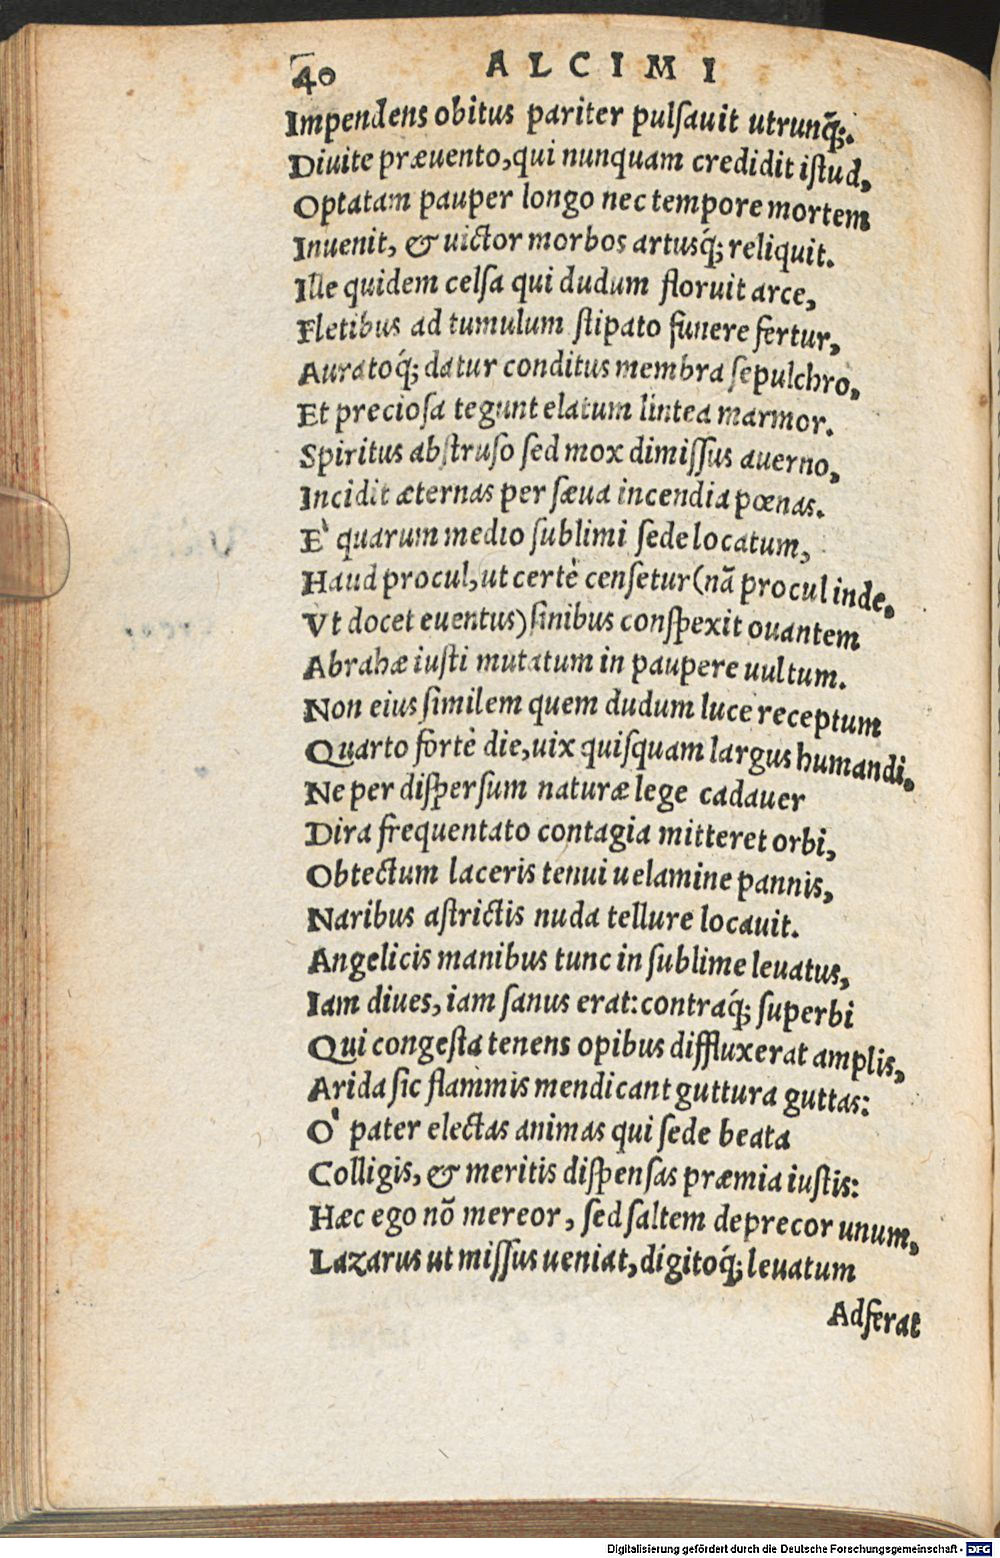 40 ALCIMI
Impendens obitus pariter pulsauit utrunq́;.
Diuite præuento, qui nunquam credidit istud,
Optatam pauper longo nec tempore mortem
Inuenit, & uictor morbos artusq́; reliquit.
Ille quidem celsa qui dudum floruit arce,
Fletibus ad tumulum stipato funere fertur,
Auratoq́; datur conditus membra sepulchro,
Et preciosa tegunt elatum lintea marmor.
Spiritus abstruso sed mox dimissus auerno,
Incidit æternas per sæua incendia pœnas.
E' quarum medio sublimi sede locatum,
Haud procul, ut certè censetur (nã procul inde,
Vt docet euentus) sinibus conspexit ouantem
Abrahæ iusti mutatum in paupere uultum.
Non eius similem quem dudum luce receptum
Quarto fortè die, uix quisquam largus humandi,
Ne per dispersum naturæ lege cadauer
Dira frequentato contagia mitteret orbi,
Obtectum laceris tenui uelamine pannis,
Naribus astrictis nuda tellure locauit.
Angelicis manibus tunc in sublime leuatus,
Iam diues, iam sanus erat: contraq́; superbi
Qui congesta tenens opibus diffluxerat amplis,
Arida sic flammis mendicant guttura guttas:
O' pater electas animas qui sede beata
Colligis, & meritis dispensas præmia iustis:
Hæc ego nõ mereor, sed saltem deprecor unum,
Lazarus ut missus ueniat, digitoq́; leuatum
Adferat
Digitalisierung gefördert durch die Deutsche Forschungsgemeinschaft - DFG